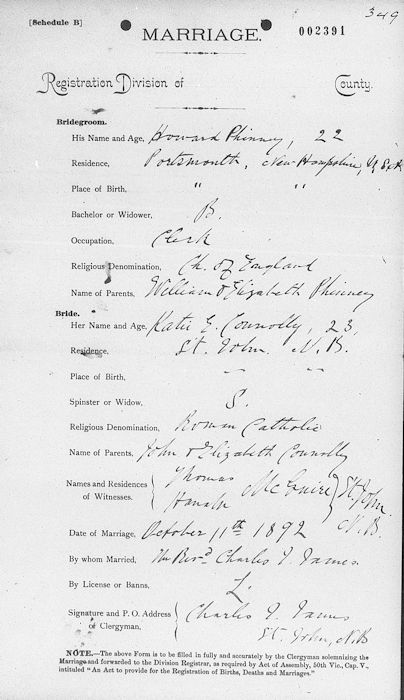 349
[Schedule B]
MARRIAGE.
002391
Registration Division of County.
Bridegroom.
His Name and Age, Howard Phinney, 22
Residence, Portsmouth, New Hampshire, U S of A
Place of Birth, " "
Bachelor or Widower, B.
Occupation, Clerk
Religious Denomination, Ch. of England
Name of Parents, William & Elizabeth Phinney
Bride.
Her Name and Age, Katie E. Connolly, 23,
Residence, St. John N.B.
Place of Birth, " "
Spinster or Widow, S.
Religious Denomination, Roman Catholic
Name of Parents, John & Elizabeth Connolly
Names and Residences of Witnesses. Thomas
Hannah McGuire St. John N.B.
Date of Marriage, October 11th 1892
By whom Married, The Revd. Charles J. James
By License or Banns, L.
Signature and P. O. Address of Clergyman, Charles J. James
St. John, N.B
NOTE.—The above Form is to be filled in fully and accurately by the Clergyman solemnizing the
Marriage and forwarded to the Division Registrar, as required by Act of Assembly, 50th Vic., Cap. V.,
intituled "An Act to provide for the Registration of Births, Deaths and Marriages."